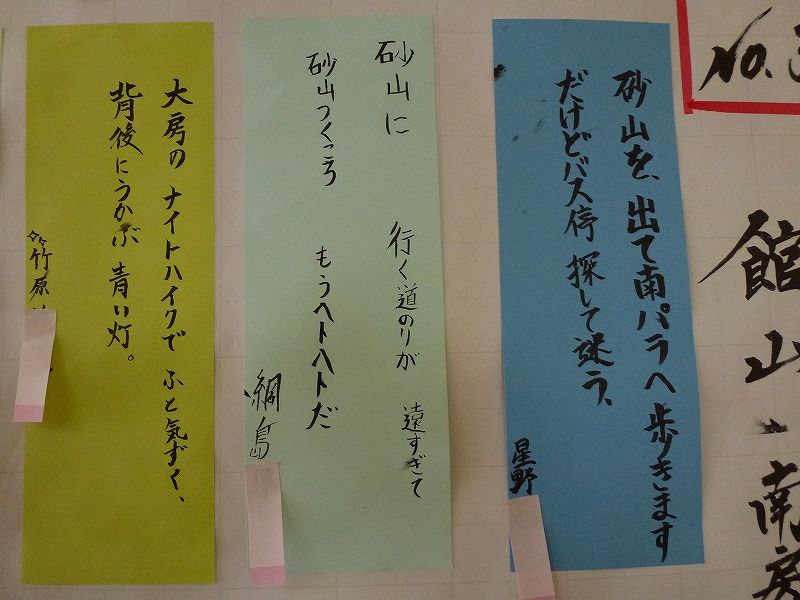 No.
館山・南房
砂山を、出て南パラへ歩きます
だけどバス停探して迷う、
星野
砂山に 行く道のりが 遠すぎて
砂山つくっちゃう もうヘトヘトだ
綱島
大房の ナイトハイクで ふと気ずく、
背後にうかぶ 青い灯。
竹原